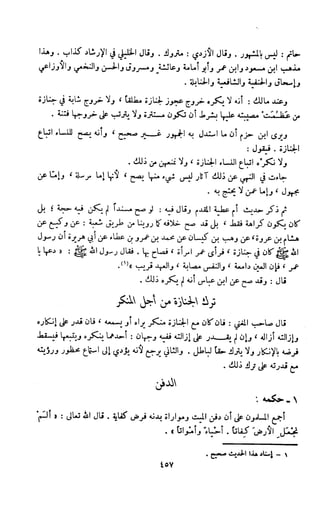 حاتم : ليس بالمشهور . وقال الأزدي : متروك . وقال الخليلي في الإرشاد كذاب . وهذا
مذهب ابن مسعود وابن عمر وأبو أمامة وعائشة ومسروق والحسن والنخعي والأوزاعي
وإسحاق والحنفية والشافعية والحنابلة .
وعند مالك : أنه لا يكره خروج عجوز لجنازة مطلقاً ، ولا خروج شابة في جنازة
من عظمت مصيبته عليها بشرط أن تكون مستترة ولا يترتب على خروجها فتنة .
ويرى ابن حزم أن ما استدل به الجمهور غير صحيح ، وأنه يصح للنساء اتباع
الجنازة . فيقول :
ولا نكره اتباع النساء الجنازة ، ولا نمنعهن من ذلك .
جاءت في النهي عن ذلك آثار ليس شيء منها يصح ، لأنها إما مرسلة ، وإما عن
مجهول ، وإما عمن لا يحتج به .
ثم ذكر حديث أم عطية المتقدم وقال فيه : لو صح مسنداً لم يكن فيه حجة ؛ بل
كان يكون كراهة فقط ، بل قد صح خلافه كا روينا من طريق شعبة : عن وكيع عن
هشام بن عروة ، عن وهب بن كيسان عن محمد بن عمرو بن عطاء عن أبي هريرة أن رسول
الله ﷺ كان في جنازة ، فرأى عمر امرأة ، فصاح بها . فقال رسول الله ﷺ : « دعها يا
عمر ، فإن العين دامعة ، والنفس مصابة ، والعهد قريب »(١).
قال : وقد صح عن ابن عباس أنه لم يكره ذلك .
ترك الجنازة من أجل المنكر
قال صاحب المغني : فان كان مع الجنازة منكر يراه أو يسمعه ، فان قدر على إنكاره
وإزالته أزاله ، وإن لم يقدر على إزالته ففيه وجهان : أحدهما ينكره ويتبعها فيسقط
فرضه بالإنكار ولا يترك حقاً لباطل . والثاني يرجع لأنه يؤدي إلى استماع محظور ورؤيته
مع قدرته على ترك ذلك .
الدفن
١ - حكمه :
أجمع المسلمون على أن دفن الميت ومواراة بدنه فرض كفاية . قال الله تعالى : « ألم
نجعل الأرض كفاتاً . أحياءً وأمواتاً » .
١ - إسناد هذا الحديث صحيح .
٤٥٧